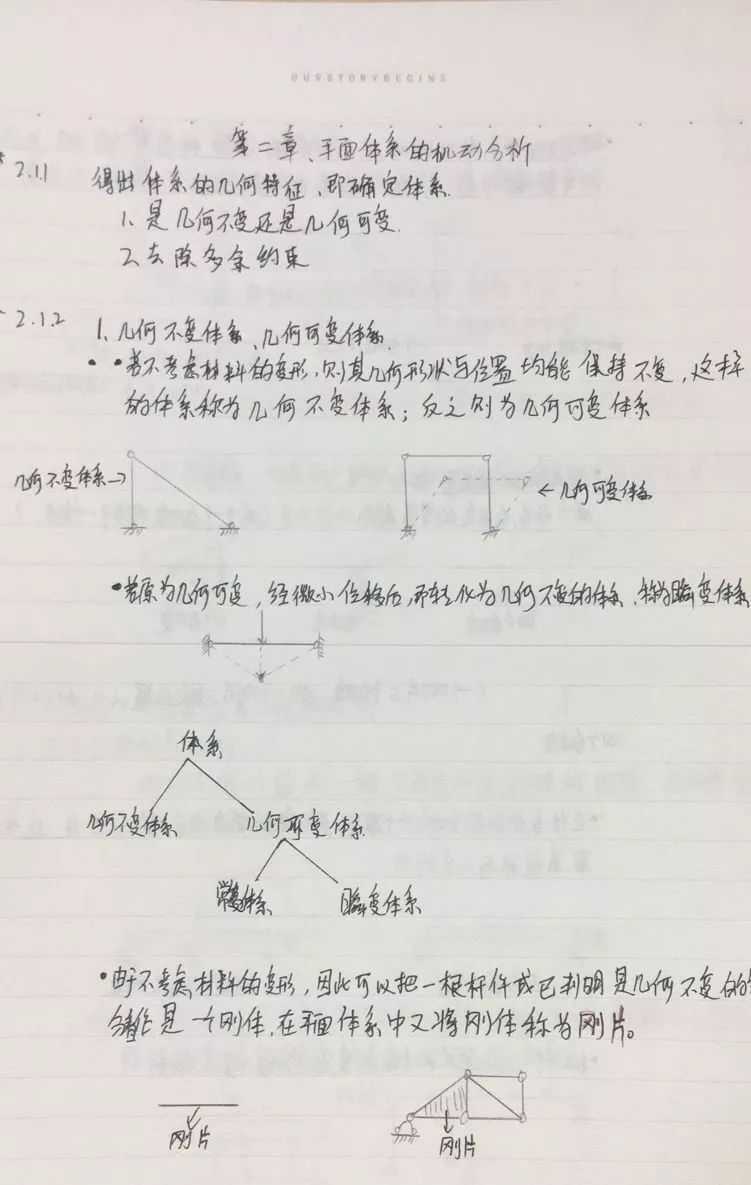 OURSTORYBEGINS
第二章、平面体系的机动分析
2.1.1
得出体系的几何特征,即确定体系.
1. 是几何不变还是几何可变.
2. 去除多余约束
2.1.2 1. 几何不变体系、几何可变体系.
• 若不考虑材料的变形,则其几何形状与位置均能保持不变,这样
的体系称为几何不变体系;反之则为几何可变体系
几何不变体系→
←几何可变体系
• 若原为几何可变,经微小位移后,即转化为几何不变的体系,称为瞬变体系
体系
几何不变体系 几何可变体系
常变体系 瞬变体系
• 由于不考虑材料的变形,因此可以把一根杆件或已判明是几何不变的
看作是一个刚体,在平面体系中又将刚体称为刚片。
刚片
刚片